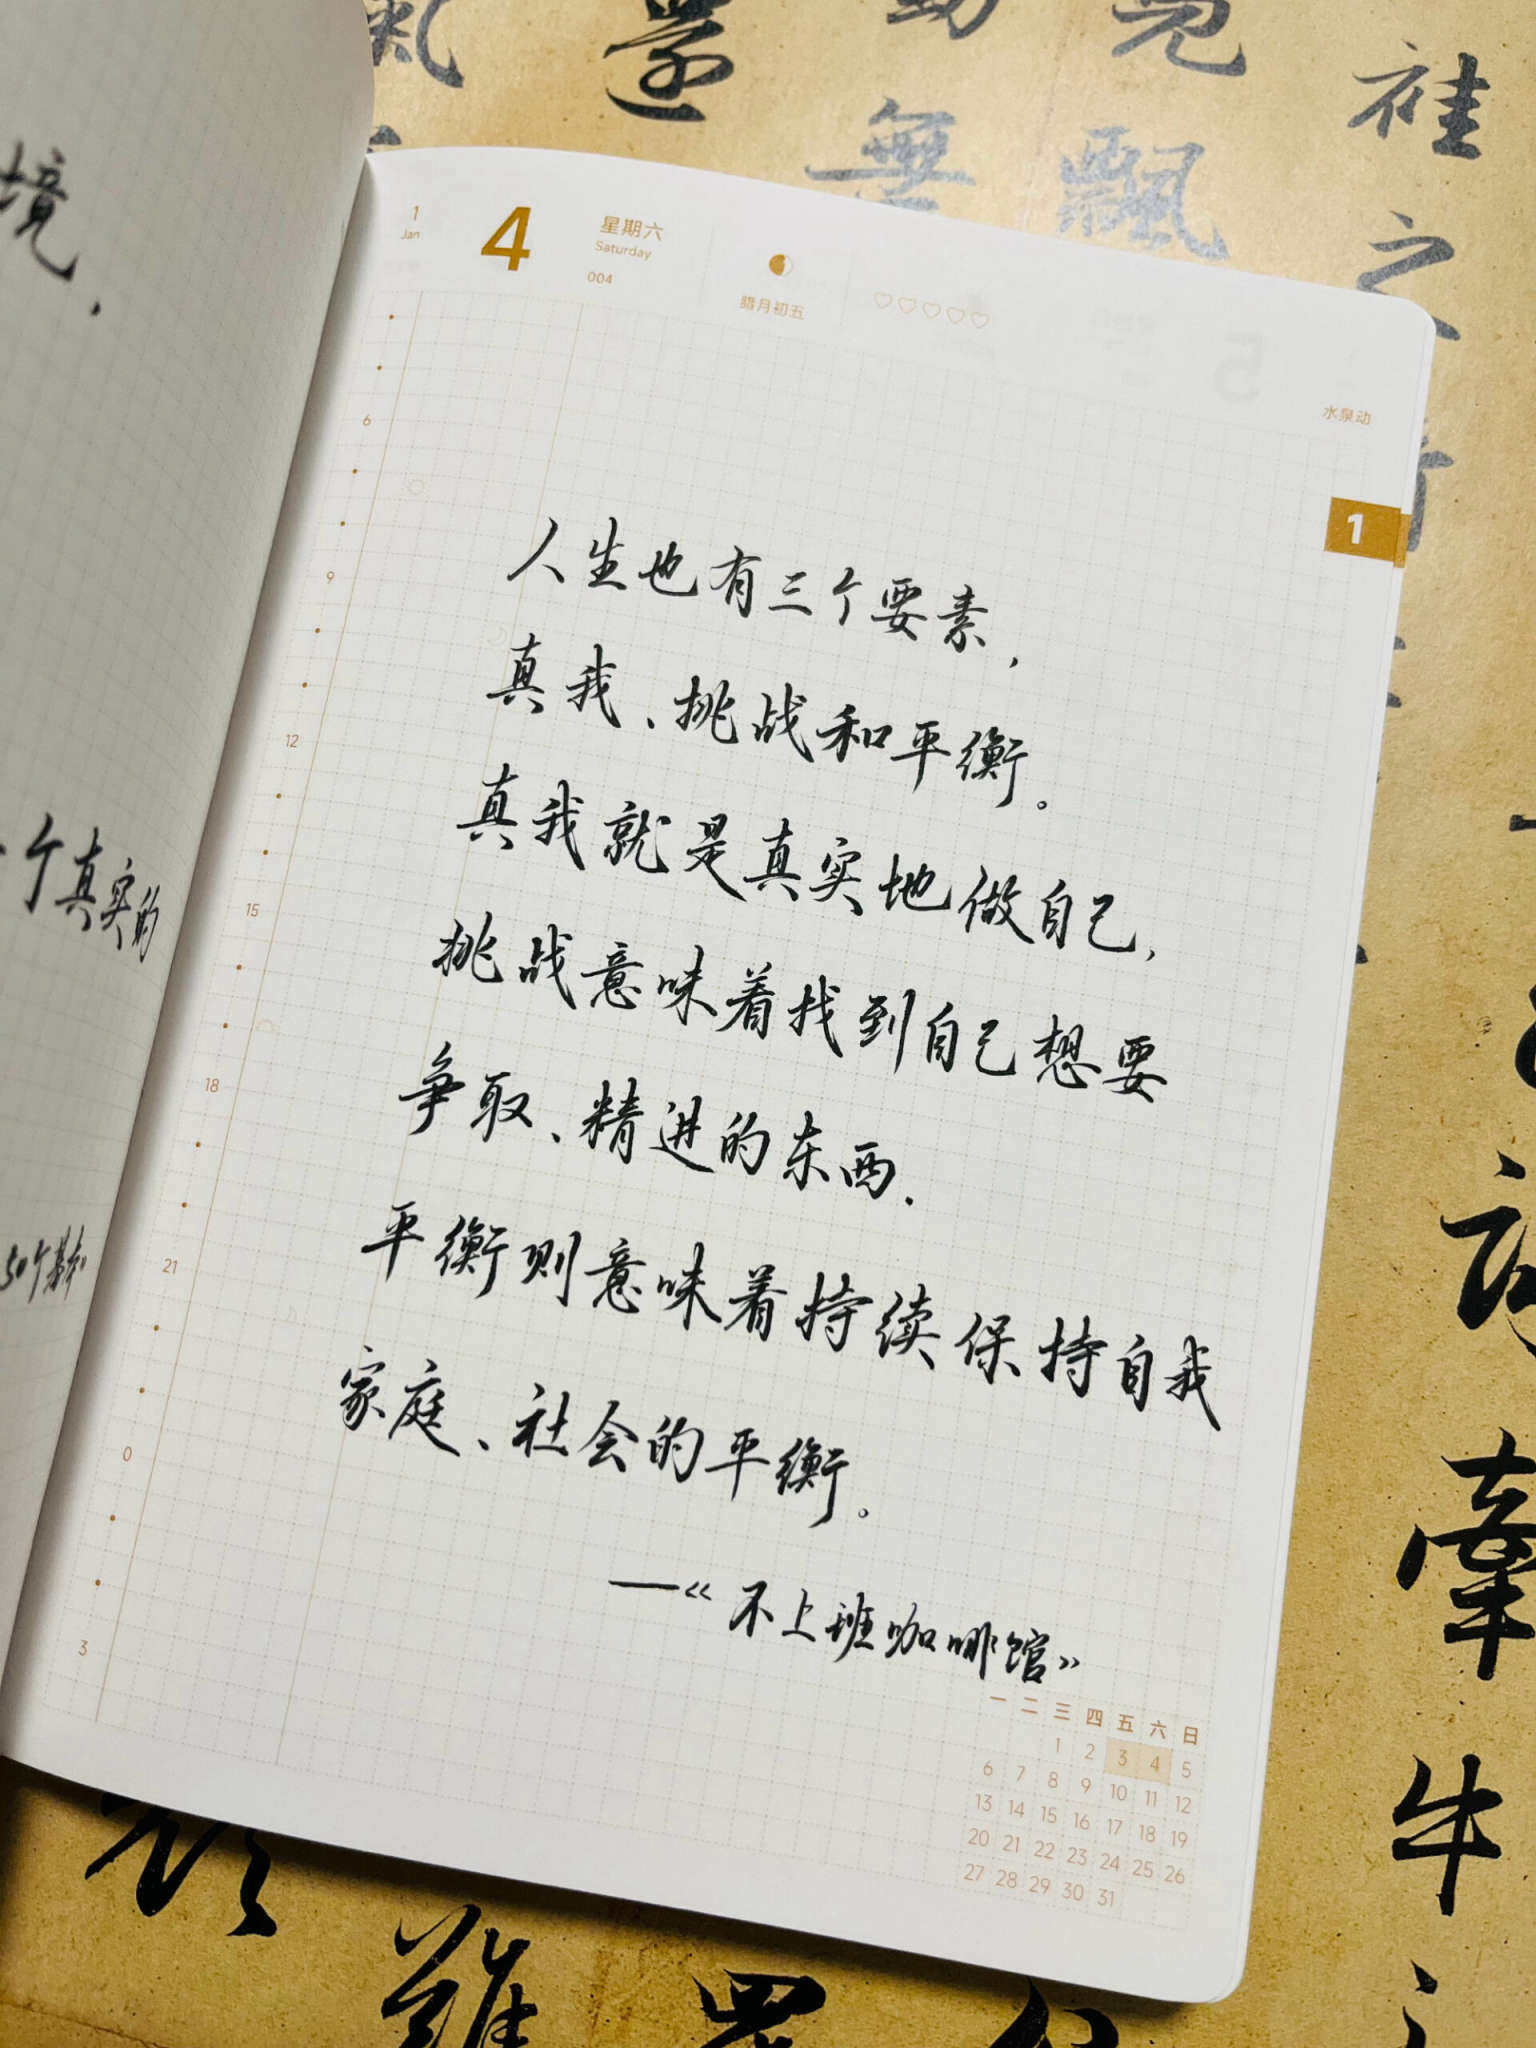 境，
个真实的
50个基本
1
Jan
4
星期六
Saturday
004
腊月初五
水泉动
1
6
9
12
15
18
21
0
3
人生也有三个要素，
真我、挑战和平衡。
真我就是真实地做自己，
挑战意味着找到自己想要
争取、精进的东西．
平衡则意味着持续保持自我
家庭、社会的平衡。
—《不上班咖啡馆》
一 二 三 四 五 六 日
1 2 3 4 5
6 7 8 9 10 11 12
13 14 15 16 17 18 19
20 21 22 23 24 25 26
27 28 29 30 31
無
飄
袿
之
牽
牛
之
難